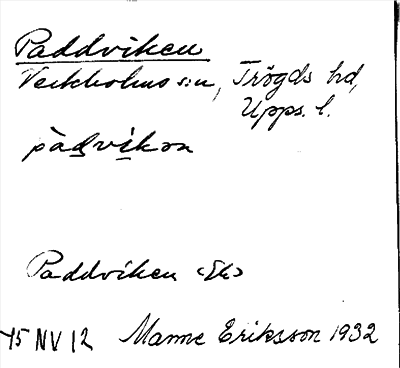 Paddviken
Veckholms s:n, Trögds hd,
Upps. l.
pàdvikən
Paddviken <Ek>
45 NV 12 Manne Eriksson 1932